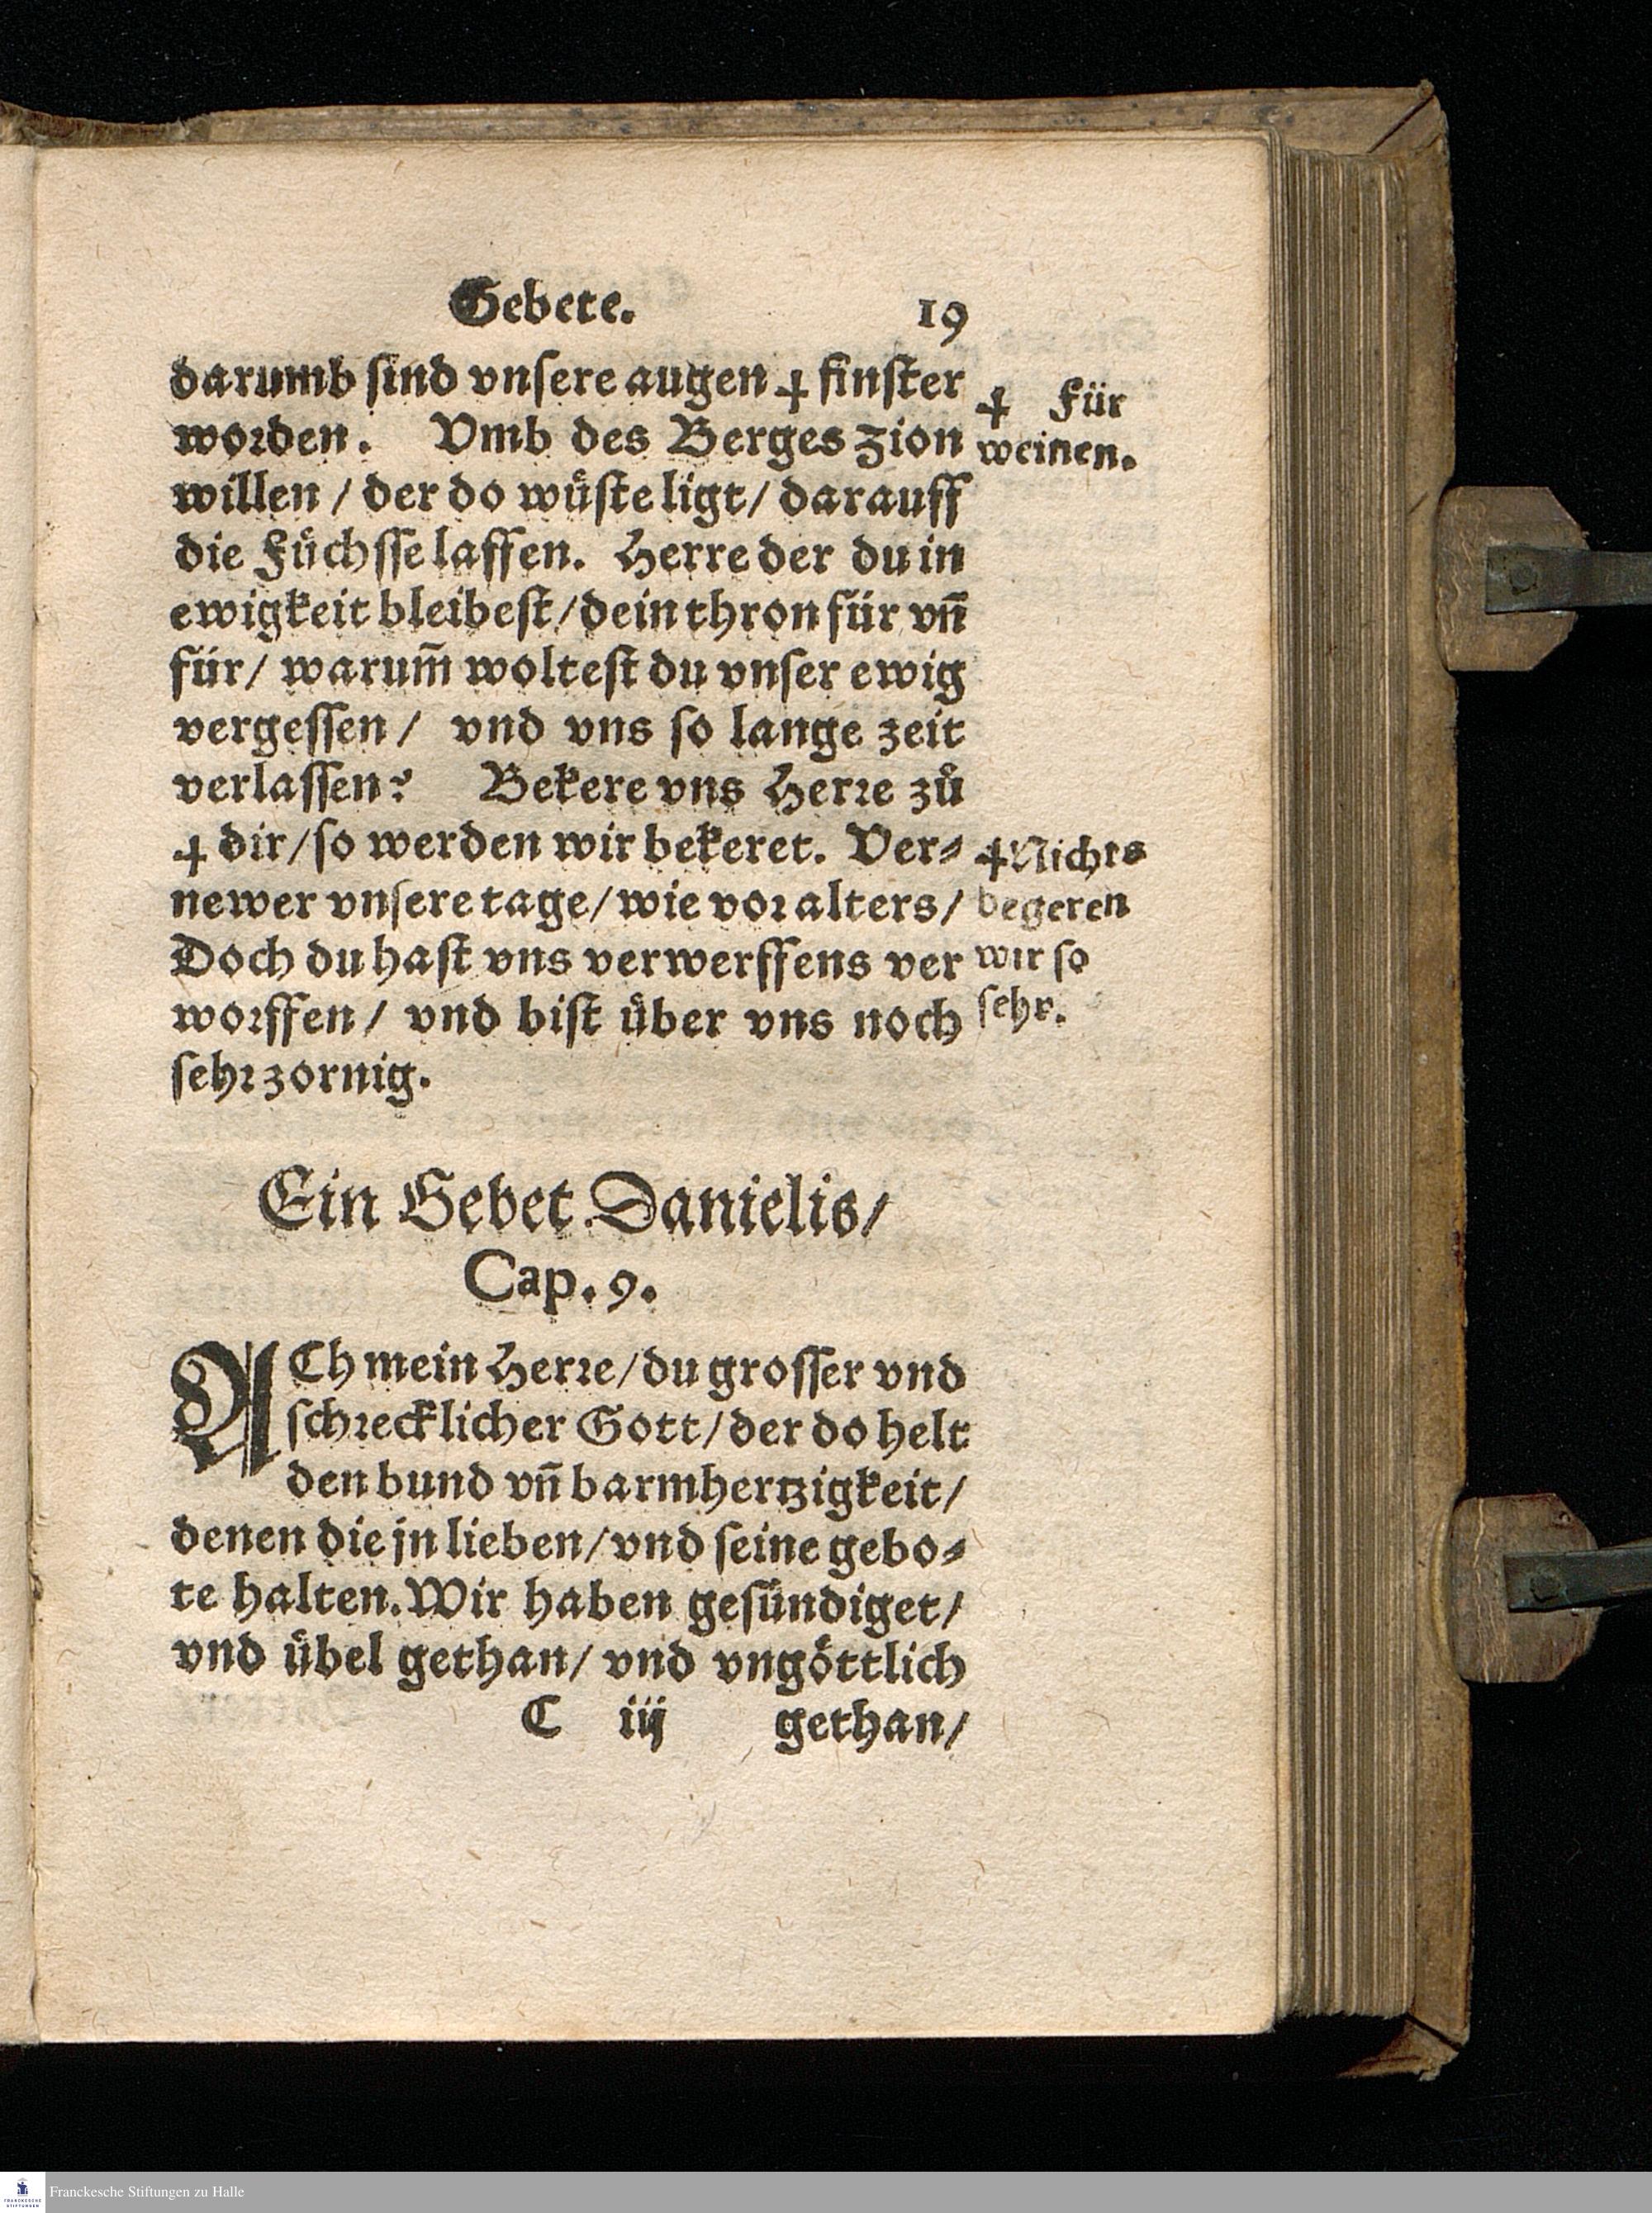 Gebete. 19
darumb sind vnsere augen ┼ finster
worden. Vmb des Berges Zion
willen / der do wuͤste ligt / darauff
die Fuͤchsse lassen. Herre der du in
ewigkeit bleibest / dein thron fuͤr vñ
fuͤr / warum̃ woltest du vnser ewig
vergessen / vnd vns so lange zeit
verlassen? Bekere vns Herre zuͦ
┼ dir / so werden wir bekeret. Ver⸗
newer vnsere tage / wie vor alters /
Doch du hast vns verwerffens ver
worffen / vnd bist uͤber vns noch
sehr zornig.
┼ Fuͤr
weinen.
┼ Nichts
begeren
wir so
sehr.
Ein Gebet Danielis /
Cap. 9.
ACh mein Herre / du grosser vnd
schrecklicher Gott / der do helt
den bund vñ barmhertzigkeit /
denen die jn lieben / vnd seine gebo⸗
te halten. Wir haben gesuͤndiget /
vnd uͤbel gethan / vnd vngoͤttlich
C iij gethan /
Franckesche Stiftungen zu Halle
FRANCKESCHE
STIFTUNGEN